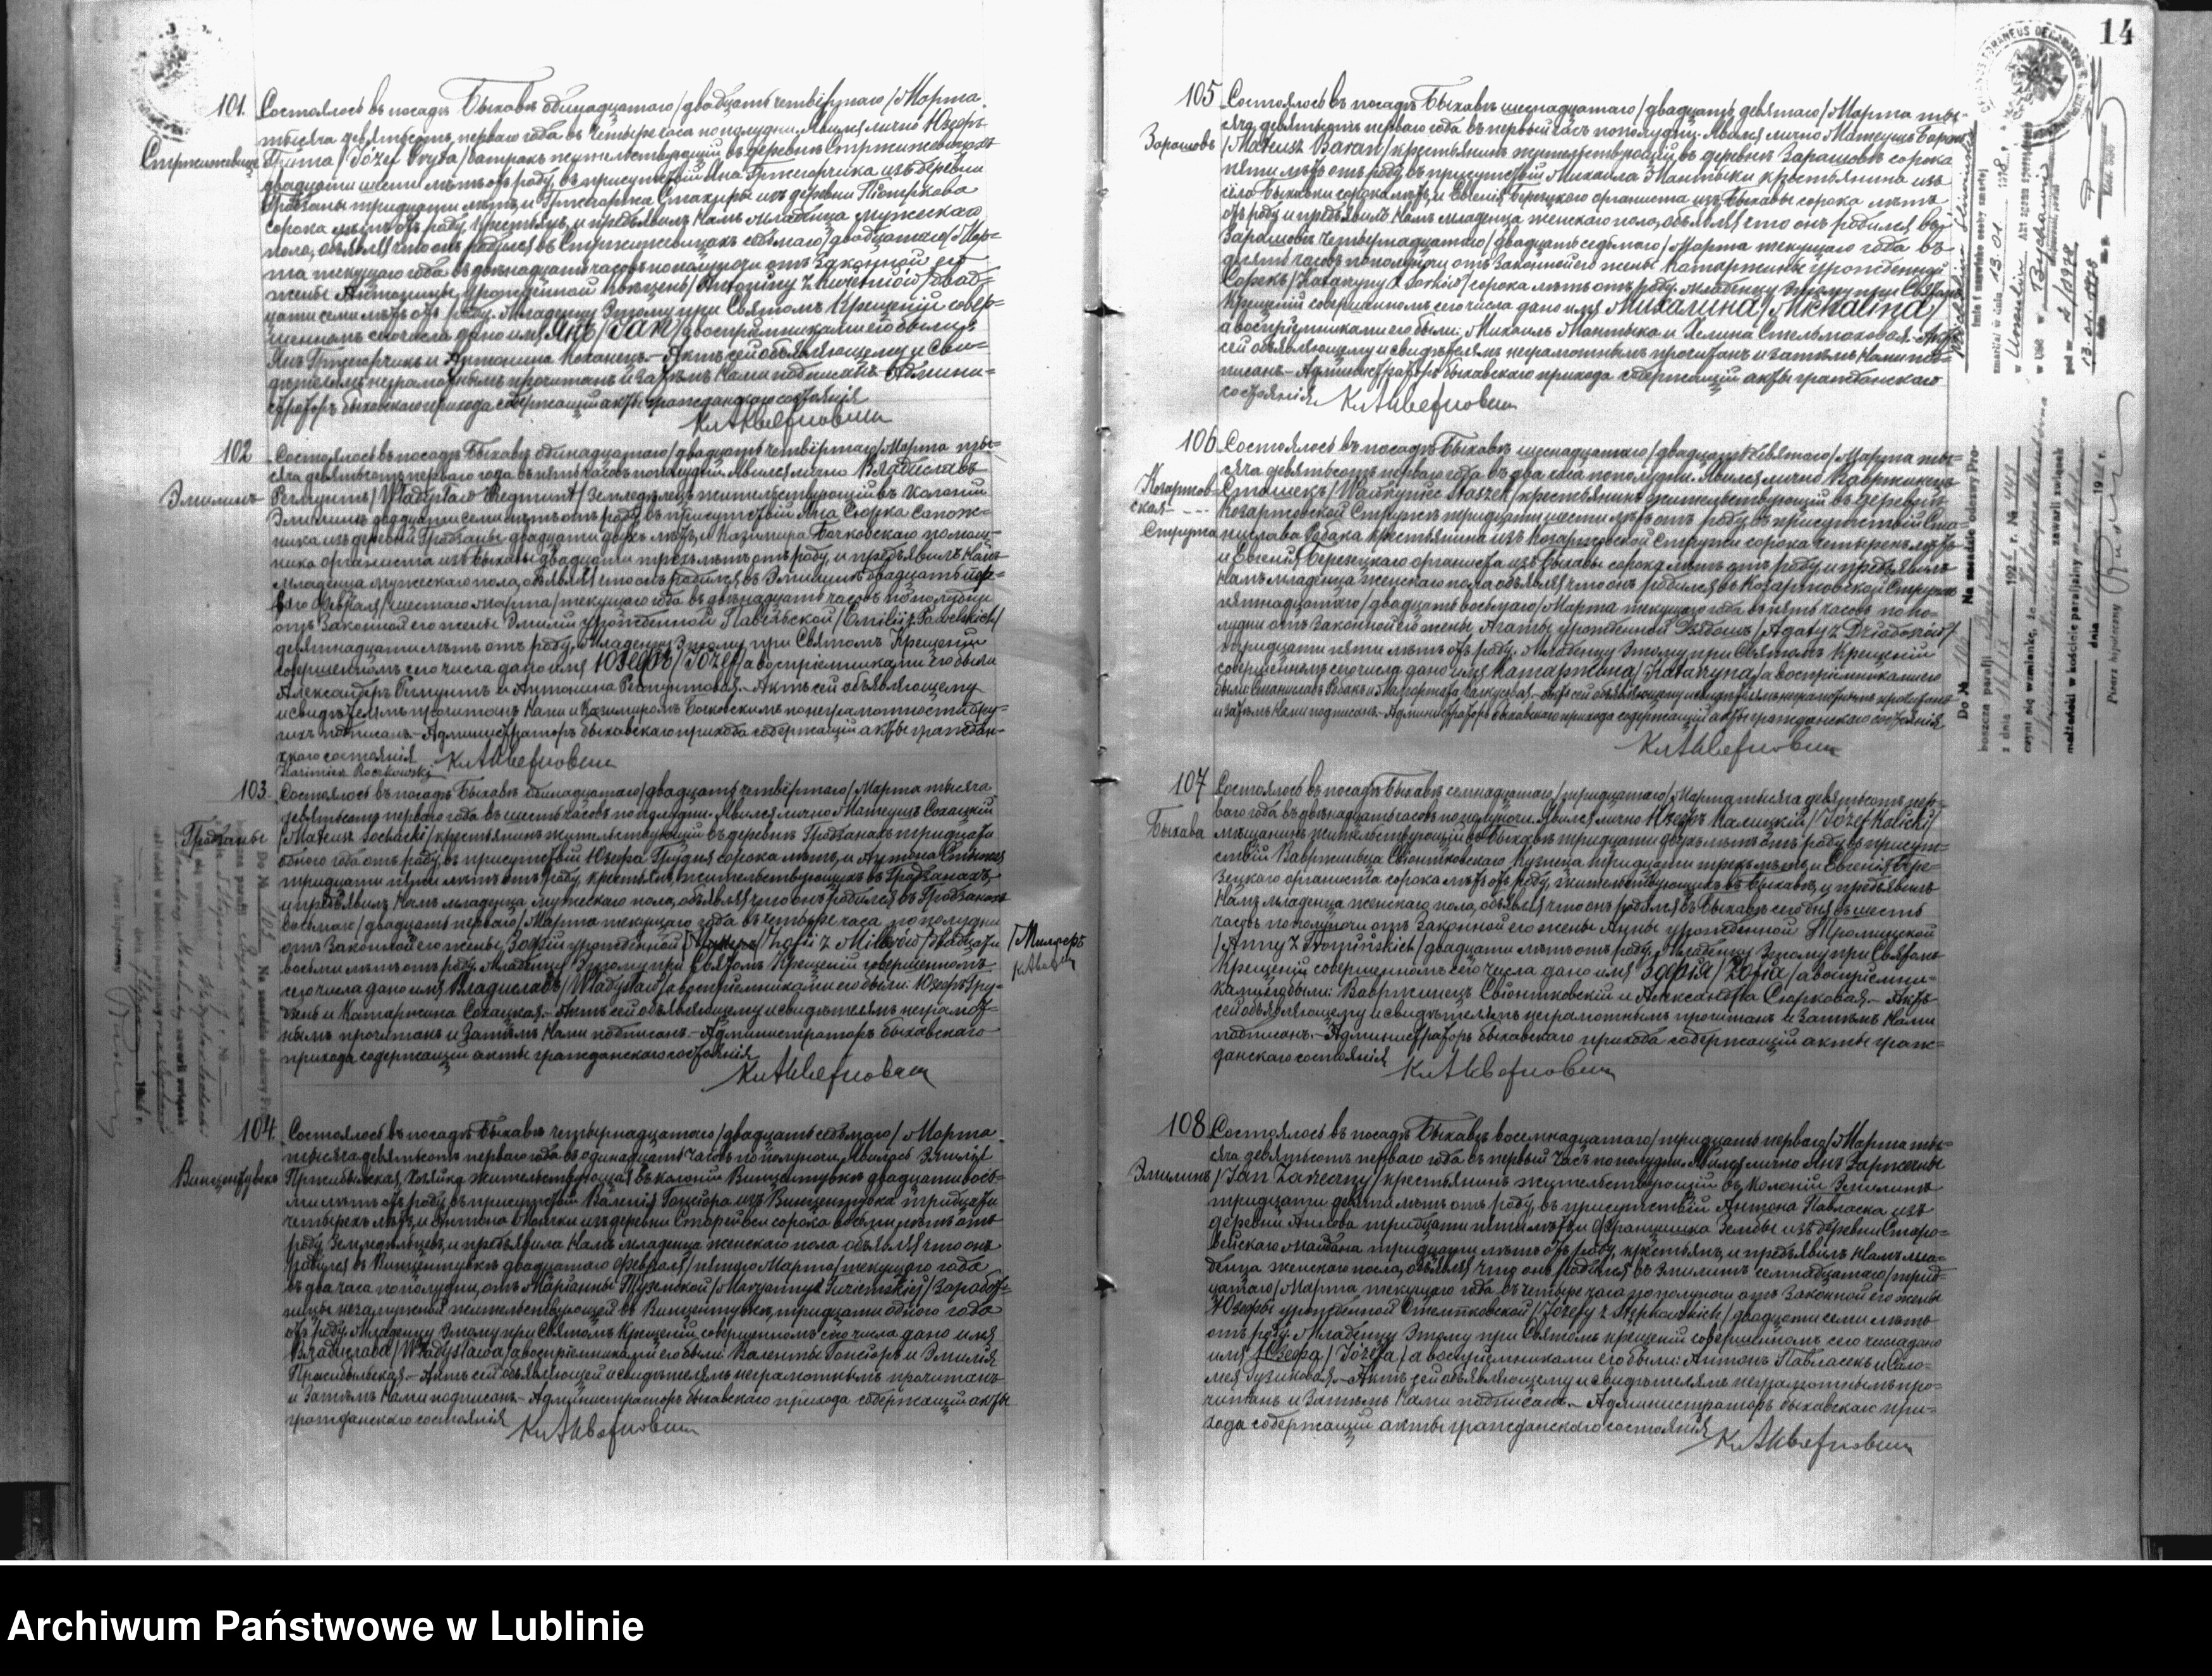 14
101.
Стржижевице
Состоялось въ посадѣ Быхавѣ одинадцатаго/двадцать четвёртаго/Марта
тысяча девятьсотъ перваго года въ четыре часа пополудни. Явился лично Юзефъ
/Józef / батракъ жительствующий въ деревнѣ Стржижевицахъ
двадцати шести лѣтъ отъ роду, въ присутствіи Яна Гржегорчика изъ деревни
тридцати лѣтъ, и Гржегоржа Стахиры изъ деревни Піотркова
сорока лѣтъ отъ роду, крестьянъ, и предъявилъ Намъ младенца мужескаго
пола, объявляя что онъ родился въ Стржижевицахъ седьмаго/двадцатаго/Мар-
та текущаго года въ двѣнадцать часовъ пополуночи отъ законной его
жены Антонины, урождённой /Antoniny z /двад-
цати семи лѣтъ отъ роду. Младенцу этому при Святомъ Крещеніи совер-
шенномъ сего числа дано имя Янъ/Jan/, а воспріемниками его были:
Янъ Гржегорчикъ и Антонина Коханецъ.- Актъ сей объявляющему и сви-
дѣтелямъ неграмотнымъ прочитанъ и затѣмъ Нами подписанъ.- Админи-
страторъ быхавскаго прихода содержащій акты гражданскаго состоянія
102
Эмилинъ
Состоялось въ посадѣ Быхавѣ одинадцатаго/двадцать четвёртаго/Марта ты-
сяча девятьсотъ перваго года въ пять часовъ пополудни. Явился лично Владиславъ
Регмунтъ/Władysław Regmunt/земледѣлецъ жительствующій въ колоніи
Эмилинъ двадцати семи лѣтъ отъ роду, въ присутствіи Яна Сюрка сапож-
ника изъ деревни Гродзаны двадцати двухъ лѣтъ, и Казимира Бочковскаго помощ-
ника органиста изъ Быхавы двадцати трехъ лѣтъ отъ роду, и предъявилъ Намъ
младенца мужескаго пола, объявляя что онъ родился въ Эмилинѣ двадцать пер-
ваго Февраля/шестаго Марта/текущаго года въ двѣнадцать часовъ пополудни
отъ законной его жены Эмиліи урождённой Павельской/Emilii z Pawelskich/
девятнадцати лѣтъ отъ роду. Младенцу этому при Святомъ Крещеніи
совершенномъ сего числа дано имя Юзефъ/Józef/, а воспріемниками его были
Александръ Регмунтъ и Антонина Регмунтовая.- Актъ сей объявляющему
и свидѣтелямъ прочитанъ Нами и Казимиромъ Бочковскимъ по неграмотности дру-
гихъ подписанъ.- Администраторъ быхавскаго прихода содержащій акты граждан-
скаго состоянія
Kazimierz Boczkowski
103.
Гродзаны
Состоялось въ посадѣ Быхавѣ одинадцатаго/двадцать четвёртаго/Марта тысяча
девятьсотъ перваго года въ шесть часовъ пополудни. Явился лично Матеушъ Сохацкій
/Mateusz Sochacki/крестьянинъ жительствующій въ деревнѣ Гродзанахъ тридцати
одного года отъ роду, въ присутствіи Юзефа Грудня сорока лѣтъ, и Антона
тридцати пяти лѣтъ отъ роду, крестьянъ, жительствующихъ въ Гродзанахъ,
и предъявилъ Намъ младенца мужескаго пола, объявляя что онъ родился въ Гродзанахъ
восьмаго/двадцать перваго/Марта текущаго года въ четыре часа пополудни
отъ законной его жены Зофіи урожденной /Zofii z Millerów/двадцати
/Миллеръ
восьми лѣтъ отъ роду. Младенцу этому при Святомъ Крещеніи совершенномъ
сего числа дано имя Владиславъ/Władysław/, а воспріемниками его были: Юзефъ Гру-
дзень и Катаржина Сохацкая.- Актъ сей объявляющему и свидѣтелямъ неграмот-
нымъ прочитанъ и затѣмъ Нами подписанъ.- Администраторъ быхавскаго
прихода содержащій акты гражданскаго состоянія
104.
Винцентувекъ
Состоялось въ посадѣ Быхавѣ четырнадцатаго/двадцать седьмаго/Марта
тысяча девятьсотъ перваго года въ одинадцать часовъ пополуночи. Явилась Эмилія
хозяйка жительствующая въ колоніи Винцентувкѣ двадцати вось-
ми лѣтъ отъ роду, въ присутствіи Валентія Гонсіора изъ Винцентувка тридцати
четырехъ лѣтъ, и Антона изъ деревни сорока восьми лѣтъ отъ
роду, земледѣльцевъ, и предъявила Намъ младенца женскаго пола объявляя что онъ
родился въ Винцентувкѣ двадцатаго Февраля/пятаго Марта/текущаго года
въ два часа пополудни, отъ Маріанны Туземской/Maryanny Tuziemskiej/заработ-
ницы незамужней жительствующей въ Винцентувкѣ, тридцати одного года
отъ роду. Младенцу этому при Святомъ Крещеніи, совершенномъ сего числа, дано имя
Владислава/Władysława/, а воспріемниками его были Валенты Гонсіоръ и Эмилія
Актъ сей объявляющей и свидѣтелямъ неграмотнымъ прочитанъ
и затѣмъ Нами подписанъ.- Администраторъ быхавскаго прихода содержащій акты
гражданскаго состоянія
105
Зарашовъ
Состоялось въ посадѣ Быхавѣ шестнадцатаго/двадцать девятаго/Марта ты-
сяча девятьсотъ перваго года въ первый часъ пополудни. Явился лично Матеушъ Баранъ
/Mateusz Baran/крестьянинъ жительствующій въ деревнѣ Зарашовѣ сорока
пяти лѣтъ отъ роду, въ присутствіи Михаила Мантыки крестьянина изъ
села Быхавки сорока лѣтъ, и Евгенія Березецкаго органиста изъ Быхавы сорока лѣтъ
отъ роду, и предъявилъ Намъ младенца женскаго пола, объявляя что онъ родился въ
Зарашовѣ четырнадцатаго/двадцать седьмаго/Марта текущаго года въ
девять часовъ пополуночи отъ законной его жены Катаржины урожденной
Сорокъ/Katarzyny z Soroków/сорока лѣтъ отъ роду. Младенцу этому при Святомъ
Крещеніи совершенномъ сего числа дано имя Михалина/Michalina/
а воспріемниками его были: Михаилъ Мантыка и Хелина Стельмаховая.- Актъ
сей объявляющему и свидѣтелямъ неграмотнымъ прочитанъ и затѣмъ Нами под-
писанъ.- Администраторъ быхавскаго прихода содержащій акты гражданскаго
состоянія
106
Козартов-
ская
Стружа
Состоялось въ посадѣ Быхавѣ шестнадцатаго/двадцать девятаго/Марта ты-
сяча девятьсотъ перваго года въ два часа пополудни. Явился лично Вавржинецъ
Сташекъ/Wawrzyniec Staszek/крестьянинъ жительствующій въ деревнѣ
Козартовской Стружѣ тридцати шести лѣтъ отъ роду, въ присутствіи Ста-
нислава Рабака крестьянина изъ Козартовской Стружи сорока четырехъ лѣтъ
и Евгенія Березецкаго органиста изъ Быхавы сорока лѣтъ отъ роду и предъявилъ
Намъ младенца женскаго пола объявляя что онъ родился въ Козартовской Стружѣ
пятнадцатаго/двадцать восьмаго/Марта текущаго года въ пять часовъ попо-
лудни отъ законной его жены, Агаты, урожденной Дзядошъ/Agaty z Dziadoszów/
тридцати пяти лѣтъ отъ роду. Младенцу этому при Святомъ Крещеніи
совершенномъ сего числа дано имя Катаржина/Katarzyna/, а воспріемниками его
были Станиславъ Рабакъ и Маргарита Актъ сей объявляющему и свидѣтелямъ неграмотнымъ прочитанъ
и затѣмъ Нами подписанъ.- Администраторъ быхавскаго прихода содержащій акты гражданскаго состоянія
107
Быхава
Состоялось въ посадѣ Быхавѣ семнадцатаго/тридцатаго/Марта тысяча девятьсотъ пер-
ваго года въ двѣнадцать часовъ пополуночи. Явился лично Юзефъ Калицкій/Józef Kalicki/
мѣщанинъ жительствующій въ Быхавѣ тридцати двухъ лѣтъ отъ роду, въ присут-
ствіи Вавржинца Свіонтковскаго кузнеца тридцати трехъ лѣтъ, и Евгенія Бере-
зецкаго органиста сорока лѣтъ отъ роду, жительствующихъ въ Быхавѣ, и предъявилъ
Намъ младенца женскаго пола, объявляя что онъ родился въ Быхавѣ сего дня въ шесть
часовъ пополуночи отъ законной его жены Анны урожденной
/Anny z / двадцати лѣтъ отъ роду. Младенцу этому при Святомъ
Крещеніи совершенномъ сего числа дано имя Зофія/Zofia/ а воспріемни-
ками его были: Вавржинецъ Свіонтковскій и Александра Сюрковая.- Актъ
сей объявляющему и свидѣтелямъ неграмотнымъ прочитанъ и затѣмъ Нами
подписанъ.- Администраторъ быхавскаго прихода содержащій акты граж-
данскаго состоянія
108
Эмилинъ
Состоялось въ посадѣ Быхавѣ восемнадцатаго/тридцать перваго/Марта ты-
сяча девятьсотъ перваго года въ первый часъ пополудни. Явился лично Янъ Заржечны
/Jan Zarzeczny/крестьянинъ жительствующій въ колоніи Эмилинъ
тридцати девяти лѣтъ отъ роду, въ присутствіи Антона Павласка изъ
деревни тридцати пяти лѣтъ, и Францишка Зембы изъ деревни Старо-
вейскаго Майдана тридцати лѣтъ отъ роду, крестьянъ, и предъявилъ Намъ мла-
денца женскаго пола, объявляя что онъ родился въ Эмилинѣ семнадцатаго/трид-
цатаго/Марта текущаго года въ четыре часа пополуночи отъ законной его жены
Юзефы урожденной /Józefy z /двадцати семи лѣтъ
отъ роду. Младенцу этому при Святомъ крещеніи совершенномъ сего числа дано
имя Юзефа/Józefa/, а воспріемниками его были: Антонъ Павласекъ и Сало-
мея Гузиковая.- Актъ сей объявляющему и свидѣтелямъ неграмотнымъ про-
читанъ и затѣмъ Нами подписанъ.- Администраторъ быхавскаго при-
хода содержащій акты гражданскаго состоянія
Archiwum Państwowe w Lublinie